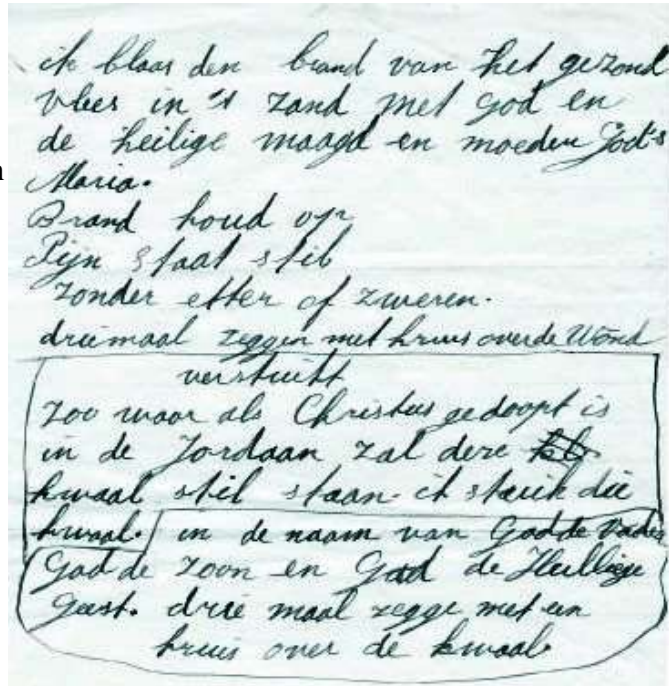 ik blaas den brand van het gezond
vlees in 's zand met god en
de heilige maagd en moeder God's
Maria.
Brand houd op
Pijn staat stil
zonder etter of zweren.
driemaal zeggen met kruis over de Wond
verstuikt
Zoo waar als Christus gedoopt is
in de Jordaan zal deze
kwaal stil staan. ik stuik die
kwaal. in de naam van God de Vader
God de zoon en God de Heillige
Geest. drie maal zegge met een
kruis over de kwaal